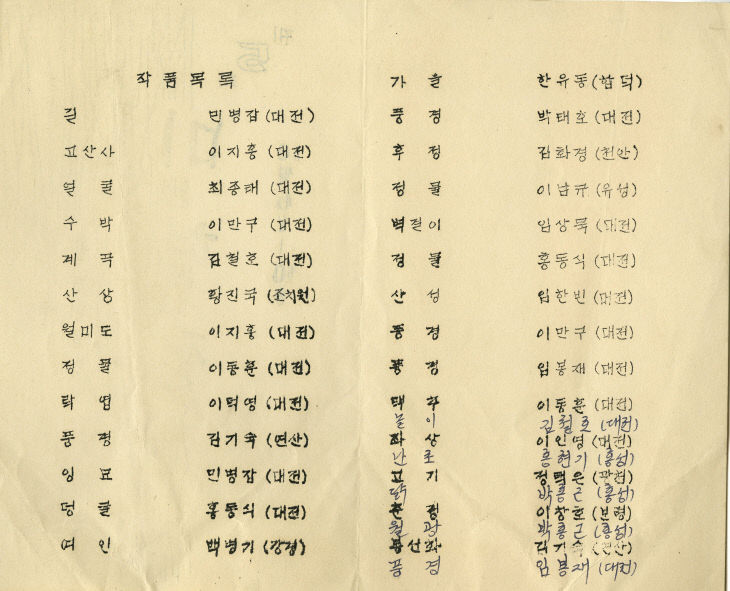 작품목록
길 민병갑(대전)
고산사 이지흥(대전)
얼굴 최종태(대전)
수박 이만구(대전)
계곡 김철호(대전)
산상 황진국(조치원)
월미도 이지흥(대전)
정물 이동훈(대전)
락엽 이덕영(대전)
풍경 김기숙(연산)
임묘 민병갑(대전)
덩굴 홍동식(대전)
여인 백병기(강경)
가을 한유동(합덕)
풍경 박태호(대전)
후정 김화경(천안)
정물 이남규(유성)
벽걸이 임상묵(대전)
정물 홍동식(대전)
산성 임한빈(대전)
풍경 이만구(대전)
풍경 임봉재(대전)
이동훈(대전)
놀이 김철호(대전)
좌상 이인영(대전)
난로 홍현기(홍성)
고기 정택은(광천)
닭 박홍근(홍성)
이창호(보령)
월광 박홍근(홍성)
봉선화 김기숙(연산)
풍경 임봉재(대전)